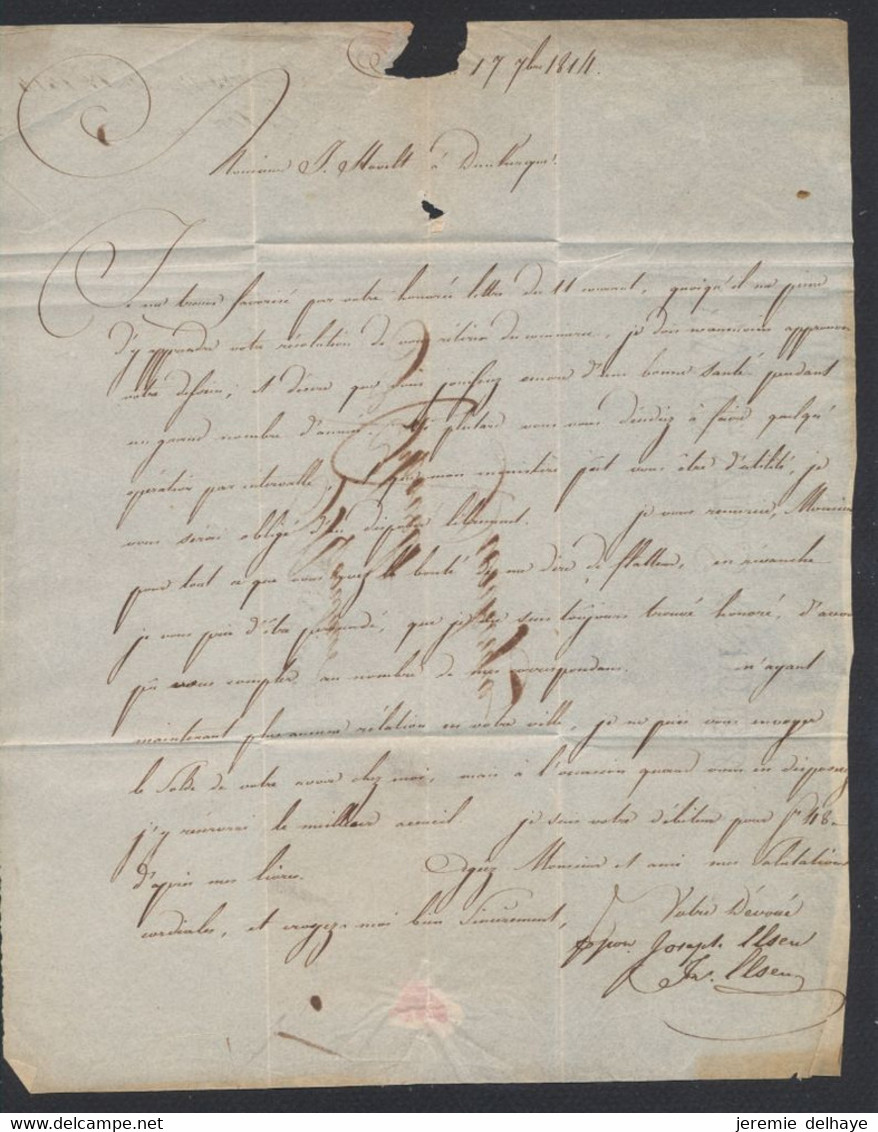 17 7bre 1814.
Monsieur J. à Dunkerque.
Je me trouve favorisé par votre honorée lettre du 11 courant, quoiqu'il me peine
d'y apprendre votre résolution de vous rétirer du commerce, je dois neanmoins approuver
votre dessein, et désire que vous jouissiez encore d'une bonne santé pendant
un grand nombre d'années. Si plutard vous vous décidez à faire quelqu'
opération par intervalle, et que mon ministère peut vous être d'utilité, je
vous serai obligé d'en disposer librement. je vous remercie, Monsieur
pour tout ce que vous avez la bonté de me dire de flatteur, en révanche
je vous prie d'être persuadé, que je me suis toujours trouvé honoré, d'avoir
pû vous compter au nombre de mes correspondans. n'ayant
maintenant plus aucune rélation en votre ville, je ne puis vous envoyer
le Solde de votre avoir chez moi, mais à l'occasion quand vous en disposez
j'y reserverai le meilleur accueil je suis votre débiteur pour 48
d'après mes livres. Agréez Monsieur et ami mes Salutations
cordiales, et croyez-moi bien Sincerement,
Votre Dévoué
ppon Joseph Elsen
Jn. Elsen
jeremie delhaye